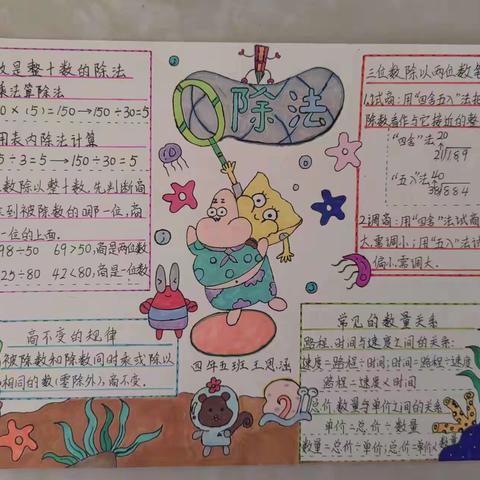 数是整十数的除法
乘法算除法
0×(5)=150→150÷30=5
用表内除法计算
5÷3=5→150÷30=5
数除以整十数,先判断商
到被除数的哪一位,商
一位的上面.
98÷50 69>50,商是两位数
25÷80 42<80,商是一位数
商不变的规律
被除数和除数同时乘或除以
相同的数(零除外),商不变.
除法
四年五班 王思涵
三位数除以两位数笔
1.试商:用“四舍五入”法把
除数看作与它接近的整
“四舍”法 20
21)189
“五入”法 40
38)884
2.调商:用“四舍”法试商
大,要调小;用“五入”法试
偏小,需调大.
常见的数量关系
路程、时间与速度之间的关系:
速度=路程÷时间;时间=路程÷速度
路程=速度×时间
总价、数量与单价之间的关系
单价=总价÷数量
数量=总价÷单价;总价=单价×数量